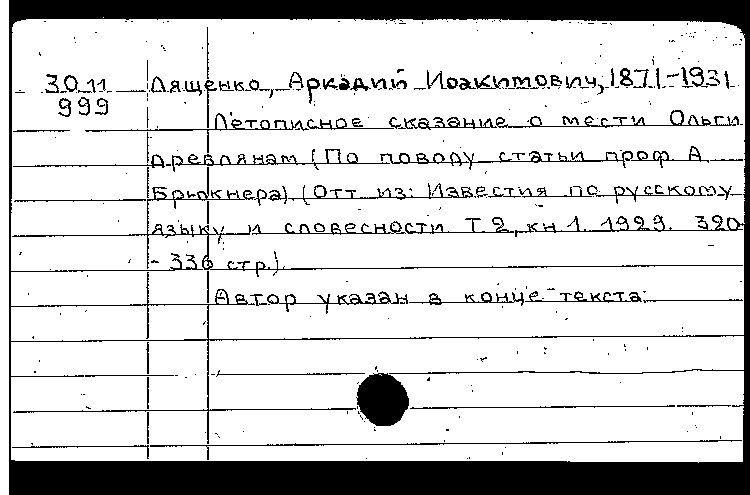 3011 Лященко, Аркадий Иоакимович, 1871-1931
999
Летописное сказание о мести Ольги
древлянам. (По поводу статьи проф. А.
Брюкнера). (Отт. из: Известия по русскому
языку и словесности Т. 2, кн 1. 1929. 320-
- 336 стр.).
Автор указан в конце текста.